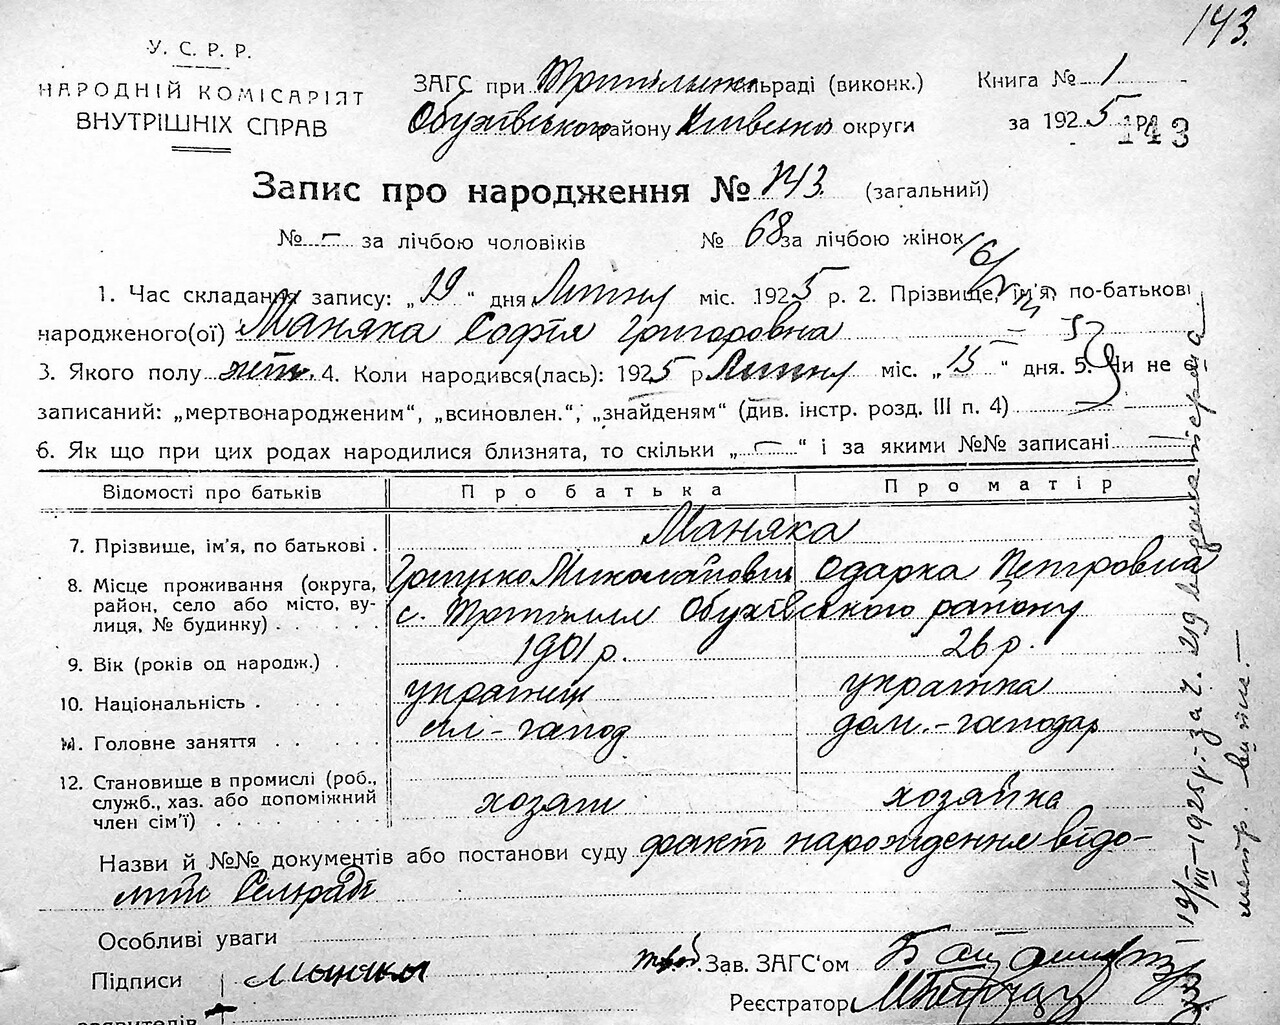 143.
У. С. Р. Р.
НАРОДНІЙ КОМІСАРІЯТ
ВНУТРІШНІХ СПРАВ
ЗАГС при сільраді (виконк.)
Обухівського району Київської округи
Книга № 1
за 1925 рік
143
Запис про народження № 143. (загальний)
№ - за лічбою чоловіків № 68 за лічбою жінок
1. Час складання запису: „19“ дня Липня міс. 1925 р. 2. Прізвище, ім'я, по-батькові
народженого(ої) Маняка Софія Григоровна
3. Якого полу жін. 4. Коли народився(лась): 1925 р Липня міс. „15“ дня. 5. Чи не є
записаний: „мертвонародженим“, „всиновлен.“, „знайденям“ (див. інстр. розд. III п. 4)
6. Як що при цих родах народилися близнята, то скільки „-“ і за якими №№ записані
Відомості про батьків Про батька Про матір
7. Прізвище, ім'я, по батькові . Маняка
Грицько Миколайович Одарка Петровна
8. Місце проживання (округа, район, село або місто, вулиця, № будинку) с. Трипілля Обухівського району
9. Вік (років од народж.) . 1901 р. 26 р.
10. Національність . українец українка
11. Головне заняття сіл-господ дом.-господар
12. Становище в промислі (роб., служб., хаз. або допоміжний член сім'ї) хозяин хозяйка
Назви й №№ документів або постанови суду факт народження відо-
мий Сельраді
Особливі уваги
Підписи Маняка
Зав. ЗАГС'ом
Реєстратор
заявителів
19/VII-1925р.- за ч. 219 видана